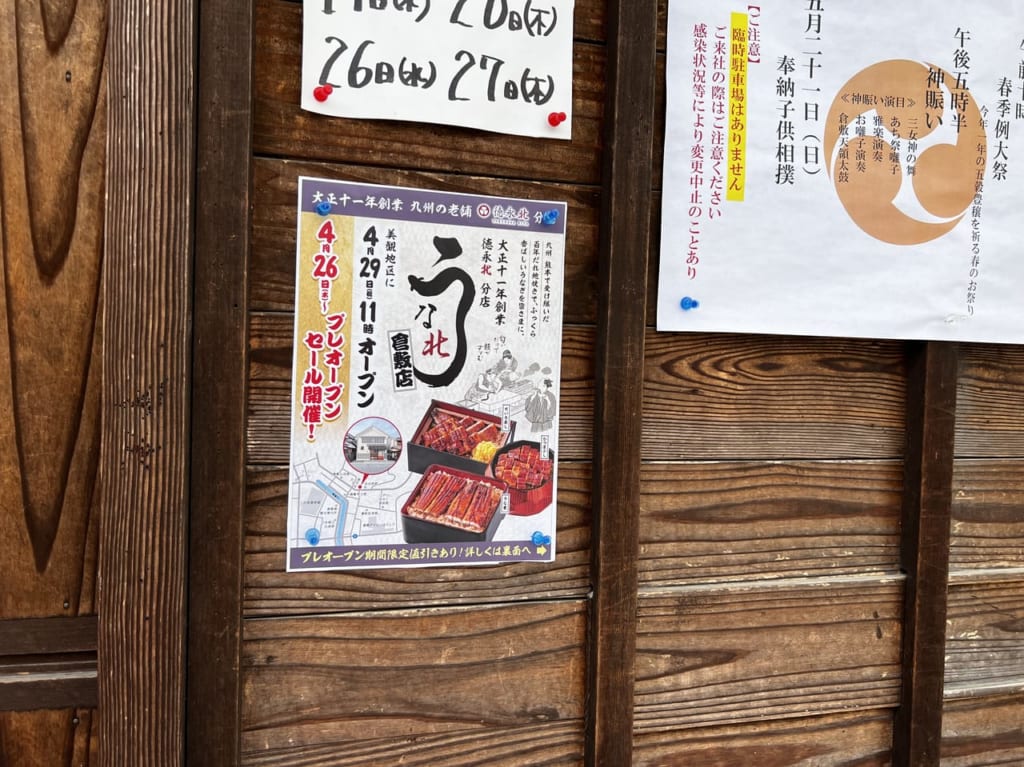 20日(木)
26日(水) 27日(木)
大正十一年創業 九州の老舗 徳永北 分
九州、熊本で受け継いだ
百年だれ地焼きで、ふっくら
香ばしいうなぎを皆さまに。
大正十一年創業
徳永北 分店
うな北
倉敷店
美観地区に
4月29日 11時オープン
4月26日(水)〜
プレオープン
セール開催!
プレオープン期間限定値引きあり!詳しくは裏面へ
春季例大祭
今年一年の五穀豊穣を祈る春のお祭り
午後五時半
神賑い
≪神賑い演目≫
三女神の舞
あち祭囃子
雅楽演奏
お囃子演奏
倉敷天領太鼓
五月二十一日(日)
奉納子供相撲
【ご注意】
臨時駐車場はありません
ご来社の際はご注意ください
感染状況等により変更中止のことあり